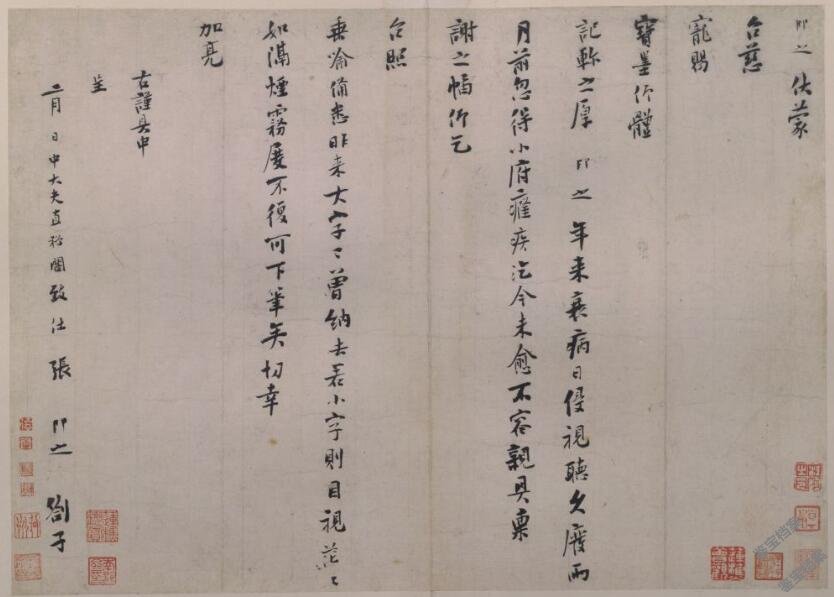 即之 伏蒙
台慈
寵賜
寶墨仰體
記軫之厚 即之 年來衰病日侵視聽久廢兩
月前忽得小府癰疾迄今未愈不容親具稟
謝之幅仰乞
台照
垂諭備悉昨來大字〻曾納去若小字則目視茫〻
如隔煙霧屢不復可下筆矣切幸
加亮
右謹具申
呈
二月 日中大夫直祕閣致仕 張 即之 劄子
鉴宝档案